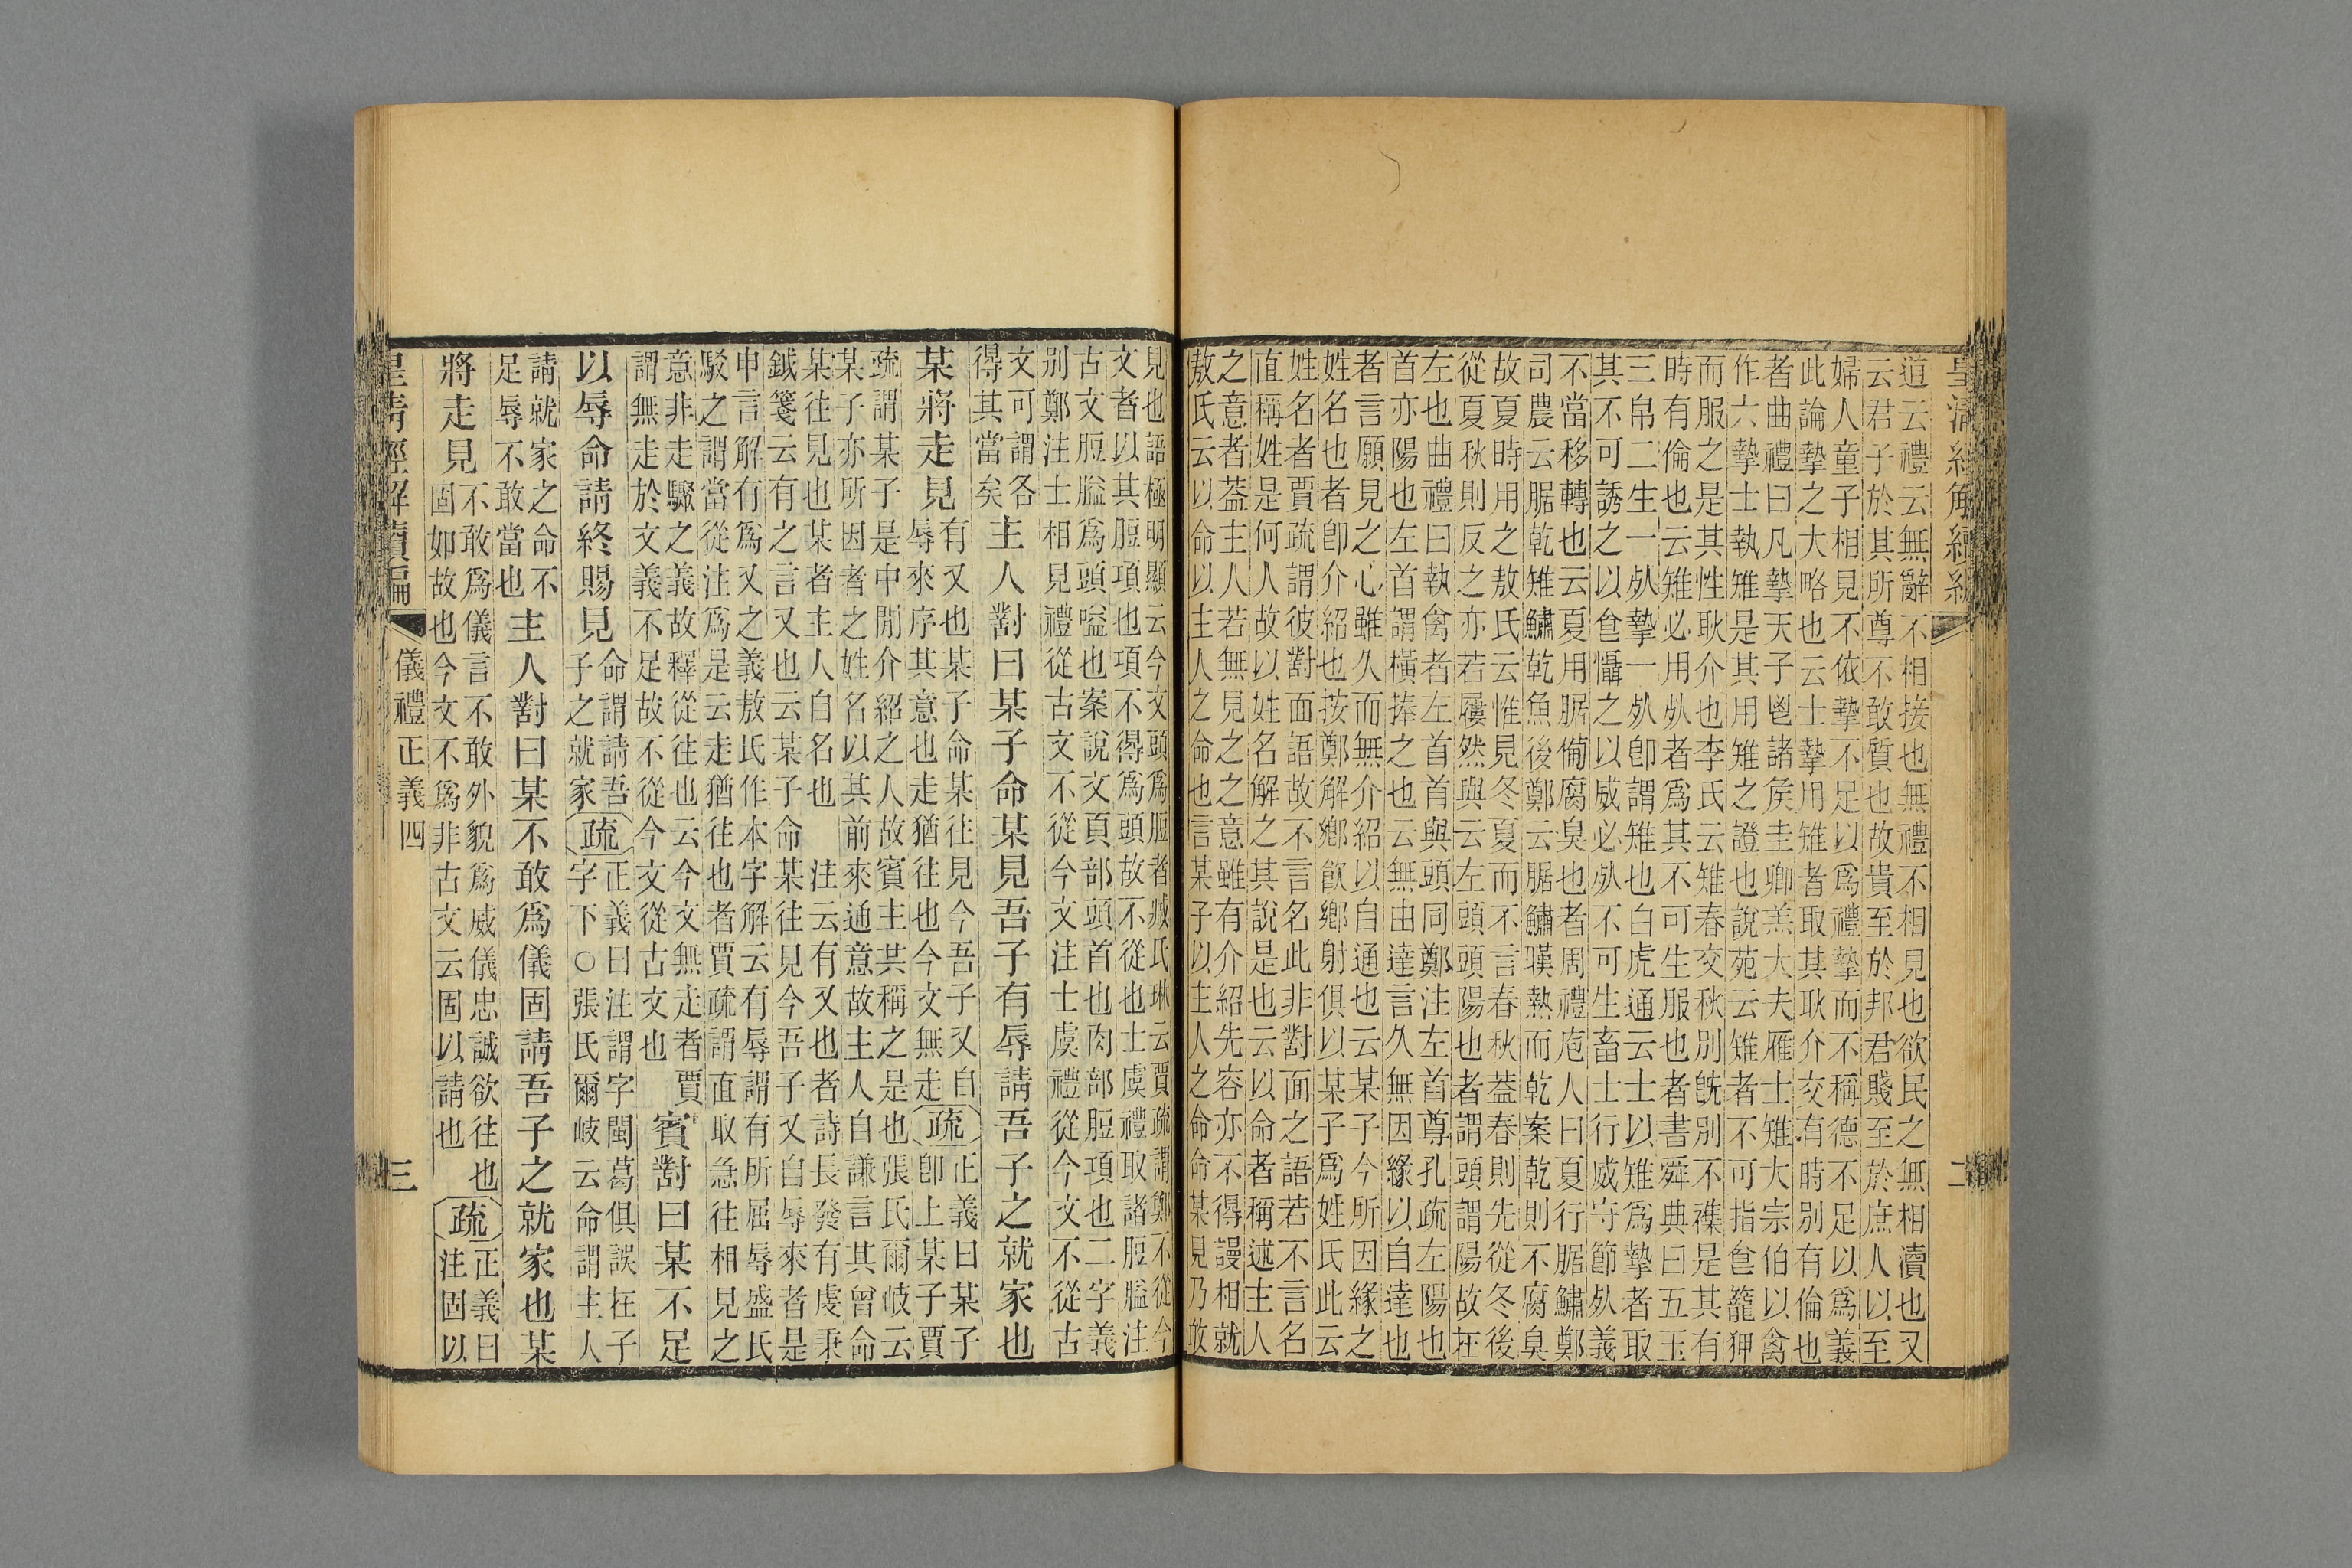 皇清經解續編
二
道云禮云無辭不相接也無禮不相見也欲民之無相瀆也又
云君子於其所尊不敢質也故貴至於邦君賤至於庶人以至
婦人童子相見不依摯不足以爲禮摯而不稱德不足以爲義
此論摯之大略也云士摯用雉者取其耿介交有時別有倫也
者曲禮曰凡摯天子鬯諸侯圭卿羔大夫雁士雉大宗伯以禽
作六摯士執雉是其用雉之證也說苑云雉者不可指食籠狎
而服之是其性耿介也李氏云雉春交秋別旣別不襍是其有
時有倫也云雉必用死者爲其不可生服也者書舜典曰五玉
三帛二生一死摯一死卽謂雉也白虎通云士以雉爲摯者取
其不可誘之以食懾之以威必死不可生畜士行威守節死義
不當移轉也云夏用腒備腐臭也者周禮庖人曰夏行腒鱐鄭
司農云腒乾雉鱐乾魚後鄭云腒鱐暵熱而乾案乾則不腐臭
故夏時用之敖氏云惟見冬夏而不言春秋蓋春則先從冬後
從夏秋則反之亦若屨然與云左頭頭陽也者謂頭謂陽故在
左也曲禮曰執禽者左首首與頭同鄭注左首尊孔疏左陽也
首亦陽也左首謂橫捧之也云無由達言久無因緣以自達也
者言願見之心雖久而無介紹以自通也云某子今所因緣之
姓名也者卽介紹也按鄭解鄉飮鄉射俱以某子爲姓氏此云
姓名者賈疏謂彼對面語故不言名此非對面之語若不言名
直稱姓是何人故以姓名解之其說是也云以命者稱述主人
之意者蓋主人若無見之之意雖有介紹先容亦不得謾相就
敖氏云以命以主人之命也言某子以主人之命命某見乃敢
見也語極明顯云今文頭爲脰者臧氏琳云賈疏謂鄭不從今
文者以其脰項也項不得爲頭故不從也士虞禮取諸脰膉注
古文脰膉爲頭嗌也案說文頁部頭首也肉部脰項也二字義
別鄭注士相見禮從古文不從今文注士虞禮從今文不從古
文可謂各
得其當矣
主人對曰某子命某見吾子有辱請吾子之就家也
某將走見
有又也某子命某往見今吾子又自
辱來序其意也走猶往也今文無走
疏
正義曰某子
卽上某子賈
疏謂某子是中閒介紹之人故賓主共稱之是也張氏爾岐云
某子亦所因者之姓名以其前來通意故主人自謙言其曾命
某往見也某者主人自名也　注云有又也者詩長發有虔秉
鉞箋云有之言又也云某子命某往見今吾子又自辱來者是
申言解有爲又之義敖氏作本字解云有辱謂有所屈辱盛氏
駁之謂當從注爲是云走猶往也者賈疏謂直取急往相見之
意非走驟之義故釋從往也云今文無走者賈
謂無走於文義不足故不從今文從古文也
賓對曰某不足
以辱命請終賜見
命謂請吾
子之就家
疏
正義曰注謂字閩葛俱誤在子
字下○張氏爾岐云命謂主人
請就家之命不
足辱不敢當也
主人對曰某不敢爲儀固請吾子之就家也某
將走見
不敢爲儀言不敢外貌爲威儀忠誠欲往也
固如故也今文不爲非古文云固以請也
疏
正義曰
注固以
皇清經解續編
儀禮正義四
三